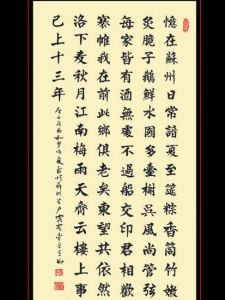 憶在蘇州日常諳夏至筵粽香筒竹嫩
炙脆子鵝鮮水國多臺榭吳風尚管弦
每家皆有酒無處不過船交印君相歡
褰帷我在前此鄉俱老矣東望共依然
洛下麥秋月江南梅雨天齊雲樓上事
已上十三年